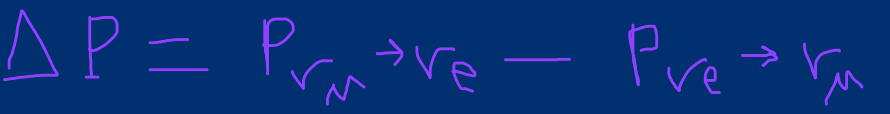 ΔP = P_{ν_μ→ν_e} − P_{ν_e→ν_μ}